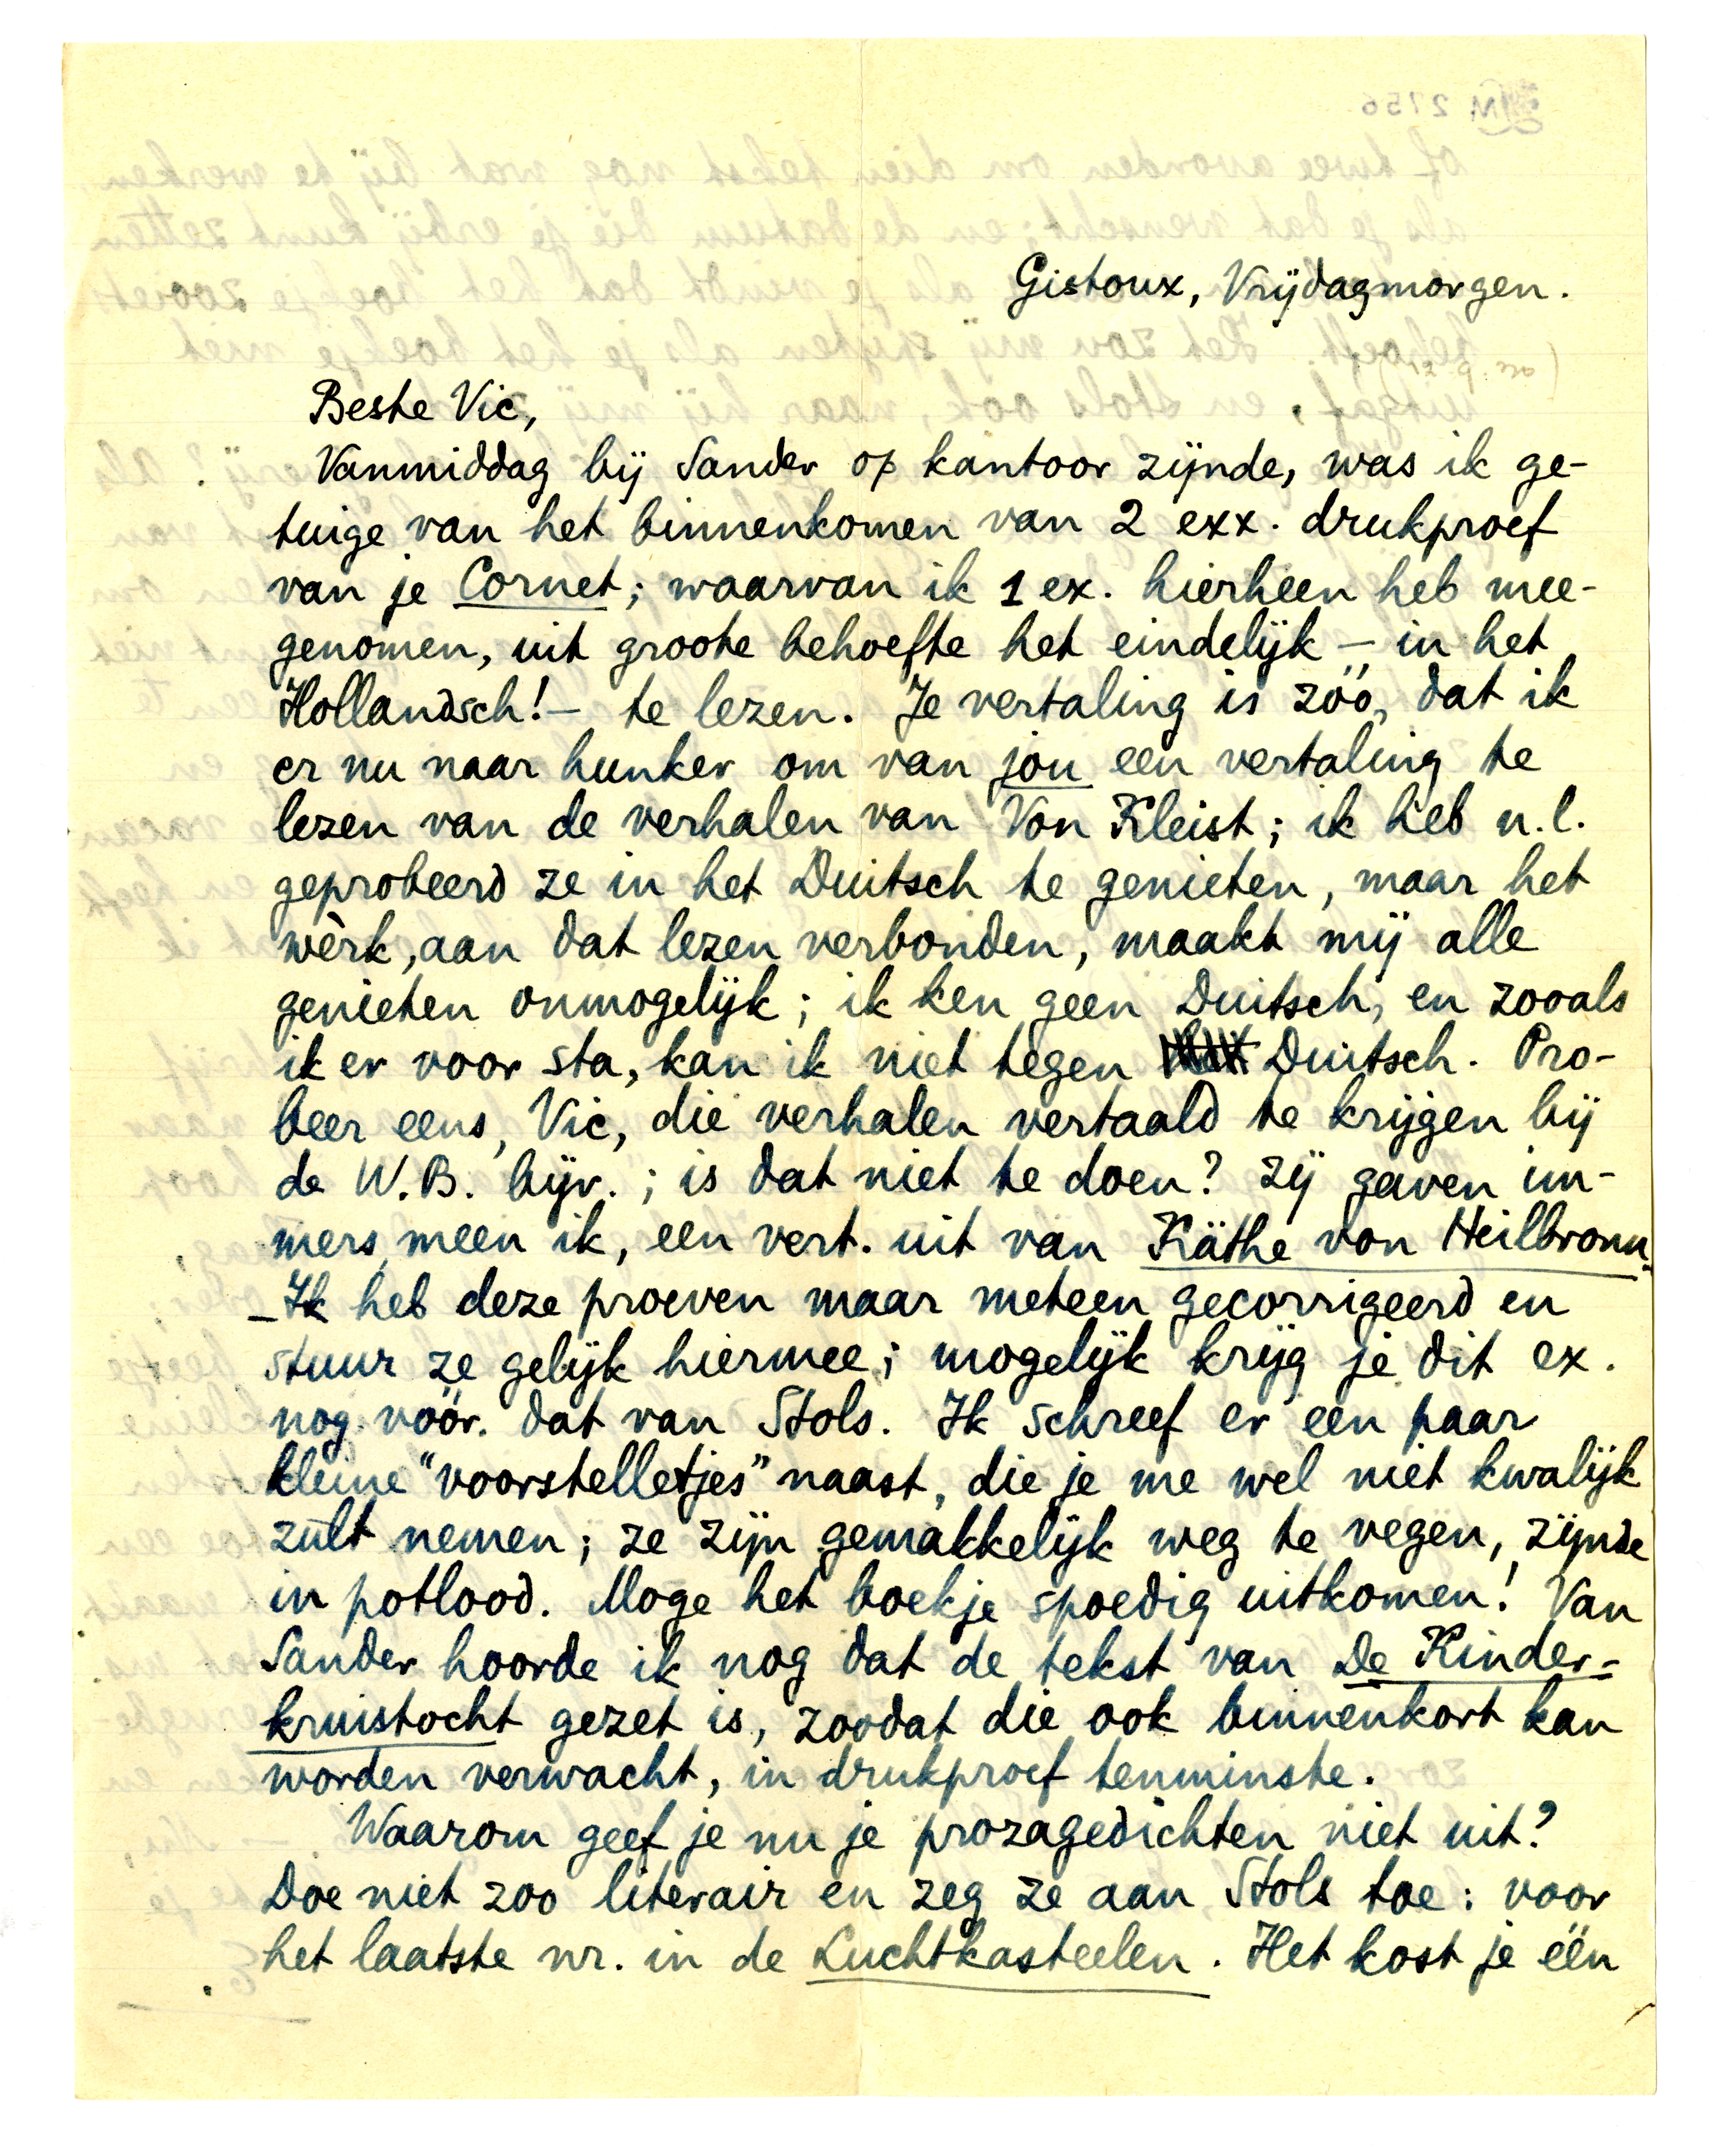 Gistoux, Vrijdagmorgen.
Beste Vic,
Vanmiddag bij Sander op kantoor zijnde, was ik ge-
tuige van het binnenkomen van 2 exx. drukproef
van je Cornet; waarvan ik 1 ex. hierheen heb mee-
genomen, uit groote behoefte het eindelijk – in het
Hollandsch! – te lezen. Je vertaling is zóó, dat ik
er nu naar hunker om van jou een vertaling te
lezen van de verhalen van Von Kleist; ik heb n.l.
geprobeerd ze in het Duitsch te genieten, maar het
wèrk, aan dat lezen verbonden, maakt mij alle
genieten onmogelijk; ik ken geen Duitsch, en zooals
ik er voor sta, kan ik niet tegen Duitsch. Pro-
beer eens, Vic, die verhalen vertaald te krijgen bij
de W.B. bijv.; is dat niet te doen? Zij gaven im-
mers, meen ik, een vert. uit van Käthe von Heilbronn.
– Ik heb deze proeven maar meteen gecorrigeerd en
stuur ze gelijk hiermee; mogelijk krijg je dit ex.
nog vóór dat van Stols. Ik schreef er een paar
kleine "voorstelletjes" naast, die je me wel niet kwalijk
zult nemen; ze zijn gemakkelijk weg te vegen, zijnde
in potlood. Moge het boekje spoedig uitkomen! Van
Sander hoorde ik nog dat de tekst van De Kinder-
kruistocht gezet is, zoodat die ook binnenkort kan
worden verwacht, in drukproef tenminste.
Waarom geef je nu je prozagedichten niet uit?
Doe niet zoo literair en zeg ze aan Stols toe: voor
het laatste nr. in de Luchtkasteelen. Het kost je één